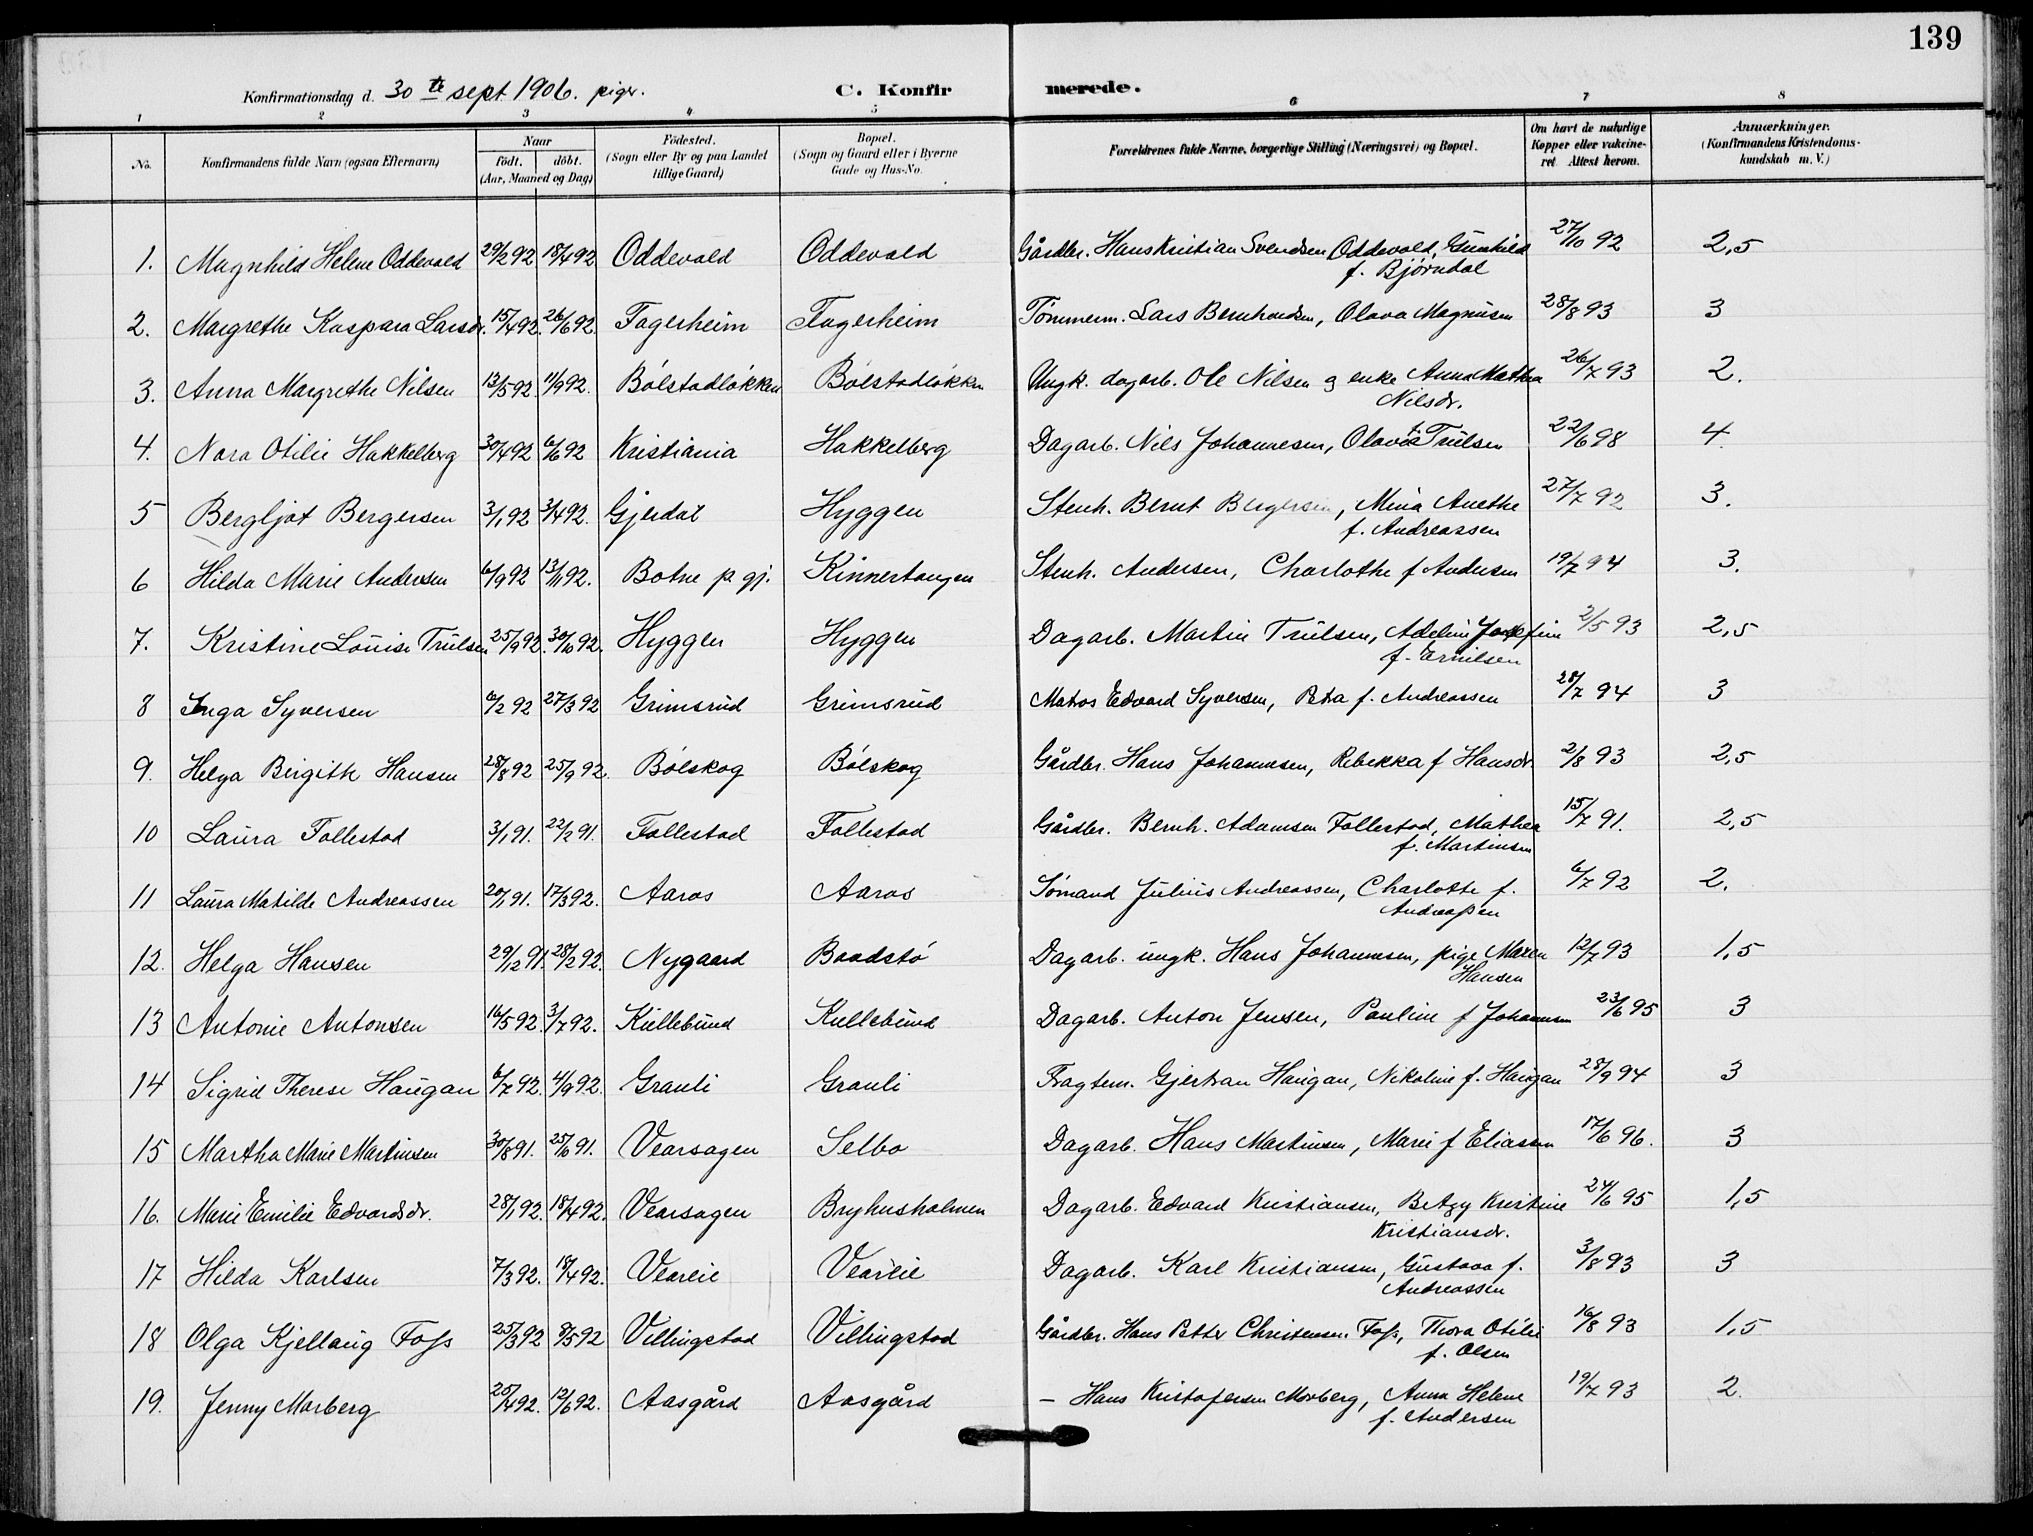 139
Konfirmationsdag d. 30te sept 1906. piger. C. Konfirmerede.
1 2 3 4 5 6 7 8
No. Konfirmandens fulde Navn (ogsaa Efternavn) Naar födt. döbt. (Aar, Maaned og Dag) Födested. (Sogn eller By og paa Landet tillige Gaard) Bopæl. (Sogn og Gaard eller i Byerne Gade og Hus-No. Forældrenes fulde Navne, borgerlige Stilling (Næringsvei) og Bopæl. Om havt de naturlige Kopper eller vakcineret Attest herom. Anmærkninger. (Konfirmandens Kristendomskundskab m. V.)
1. Magnhild Helene Oddevald 29/2 92 18/4 92 Oddevald Oddevald Gårdbr. Hans Kristian Svendsen Oddevald, Gunhild 27/10 92 2,5
f. Bjørndal
2. Margrethe Kaspara Larsdr. 15/4 92. 26/6 92. Fagerheim Fagerheim Tømmerm. Lars Bernhardsen, Olava Magnusen 28/8 93 3
3. Anna Margrethe Nilsen 13/5 92. 11/9 92. Bölstadløkken Bölstadløkken Ungk. dagarb. Ole Nilsen og enke Anna Mathea 26/7 93 2.
Nilsdr.
4. Nora Otilie Hakkelberg 30/4 92 6/6 92 Kristiania Hakkelberg Dagarb. Nils Johannesen, Olava f. Trulsen 22/6 98 4.
5 Bergljot Bergersen 3/1 92 3/4 92. Gjerdal Hyggen Stenh. Bernt Bergersen, Mina Anethe 27/7 92 3.
f. Andreassen
6 Hilda Marie Andersen 6/9 92 13/11 92. Botne p gj. Kinnertangen Stenh. Andersen, Charlothe f Andersen 19/7 94 3.
7. Kristine Louise Trulsen 25/9 92. 30/10 92. Hyggen Hyggen Dagarb. Martin Trulsen, Adeline Josefine 2/5 93 2,5
f. Ernilsen
8 Inga Syversen 6/2 92 27/3 92 Grimsrud Grimsrud Matros Edvard Syversen, Petra f. Andreassen 28/7 94 3
9. Helga Birgitte Hansen 28/8 92 25/9 92. Bölskog Bölskog Gårdbr. Hans Johannesen, Rebekka f Hansdr. 2/8 93 2,5
10 Laura Follestad 3/1 91. 22/2 91. Follestad Follestad Gårdbr. Bernh. Adamsen Follestad, Mathea 15/7 91. 2,5
f. Martinsen
11 Laura Matilde Andreassen 20/11 91. 17/3 92. Aaros Aaros Sömand Julius Andreassen, Charlotte f. 6/7 92 2.
Andreaßen
12. Helga Hansen 29/12 91. 28/2 92. Nygaard Baadstö Dagarb. ungk. Hans Johannesen, pige Maren 12/7 93 1,5
Hansen
13 Antonie Antonsen 16/5 92. 3/7 92. Kullebund Kullebund Dagarb. Anton Jensen, Pauline f Johannesen 23/6 95 3
14 Sigrid Therese Haugan 6/7 92. 4/9 92. Granli Granli Fragtem. Gjertran Haugan, Nikoline f. Haugan 28/9 94 3
15 Martha Marie Martinsen 30/8 91. 25/10 91. Vearsagen Selbo Dagarb. Hans Martinsen, Marie f Eliassen 17/6 96. 3
16. Marie Emilie Edvardsdr. 28/1 92. 18/4 92. Vearsagen Bryhusholmen Dagarb. Edvard Kristiansen, Betzy Kristine 24/6 95 1,5
Kristiansdr.
17 Hilda Karlsen 7/3 92. 18/4 92. Vearlie Vearlie Dagarb. Karl Kristiansen, Gustava f. 3/8 93 3
Andreassen
18 Olga Kjellaug Foss 25/3 92 8/5 92 Villingstad Villingstad Gårdbr. Hans Petter Christensen Foss, Thora Otilie 16/8 93 1,5
f. Olsen
19. Jenny Morberg 25/4 92. 12/6 92. Aasgård Aasgård – Hans Kristofersen Morberg, Anna Helene 19/7 93 2.
f. Andersen